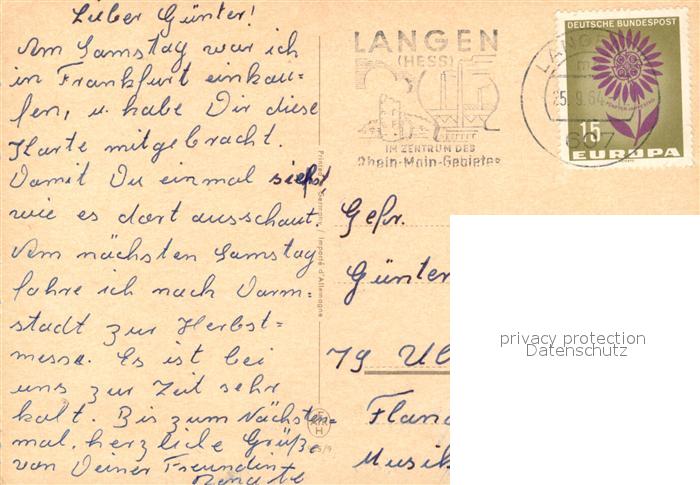 Lieber Günter!
Am Samstag war ich
in Frankfurt einkau-
fen, u. habe Dir diese
Karte mitgebracht.
Damit Du einmal siehst,
wie es dort ausschaut.
Am nächsten Samstag
fahre ich nach Darm-
stadt zur Herbst-
messe. Es ist bei
uns zur Zeit sehr
kalt. Bis zum Nächsten-
mal, herzliche Grüße
von Deiner Freundin
Renate
Printed in Germany / Importé d'Allemagne
LANGEN
(HESS)
IM ZENTRUM DES
Rhein-Main-Gebietes
LANGEN
25.9.64
607
DEUTSCHE BUNDESPOST
15
EUROPA
Gefr.
Günter
79 Ul
Flan
Musik
privacy protection
Datenschutz